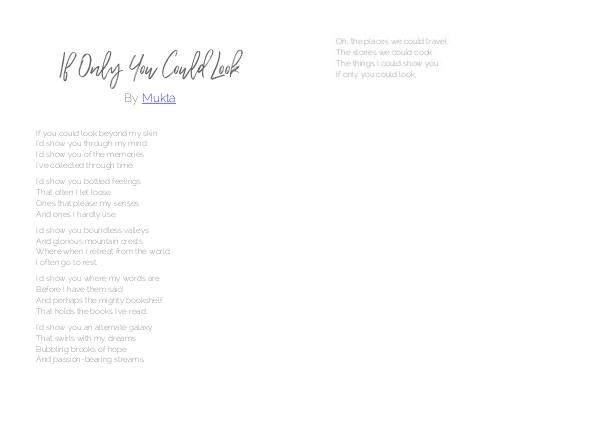 If Only You Could Look
By Mukta
If you could look beyond my skin
I'd show you through my mind
I'd show you of the memories
I've collected through time.
I'd show you bottled feelings
That often I let loose
Ones that please my senses
And ones I hardly use.
I'd show you boundless valleys
And glorious mountain crests
Where when I retreat from the world
I often go to rest.
I'd show you where my words are
Before I have them said
And perhaps the mighty bookshelf
That holds the books I've read.
I'd show you an alternate galaxy
That swirls with my dreams
Bubbling brooks of hope
And passion-bearing streams.
Oh, the places we could travel
The stories we could cook
The things I could show you
If only you could look.